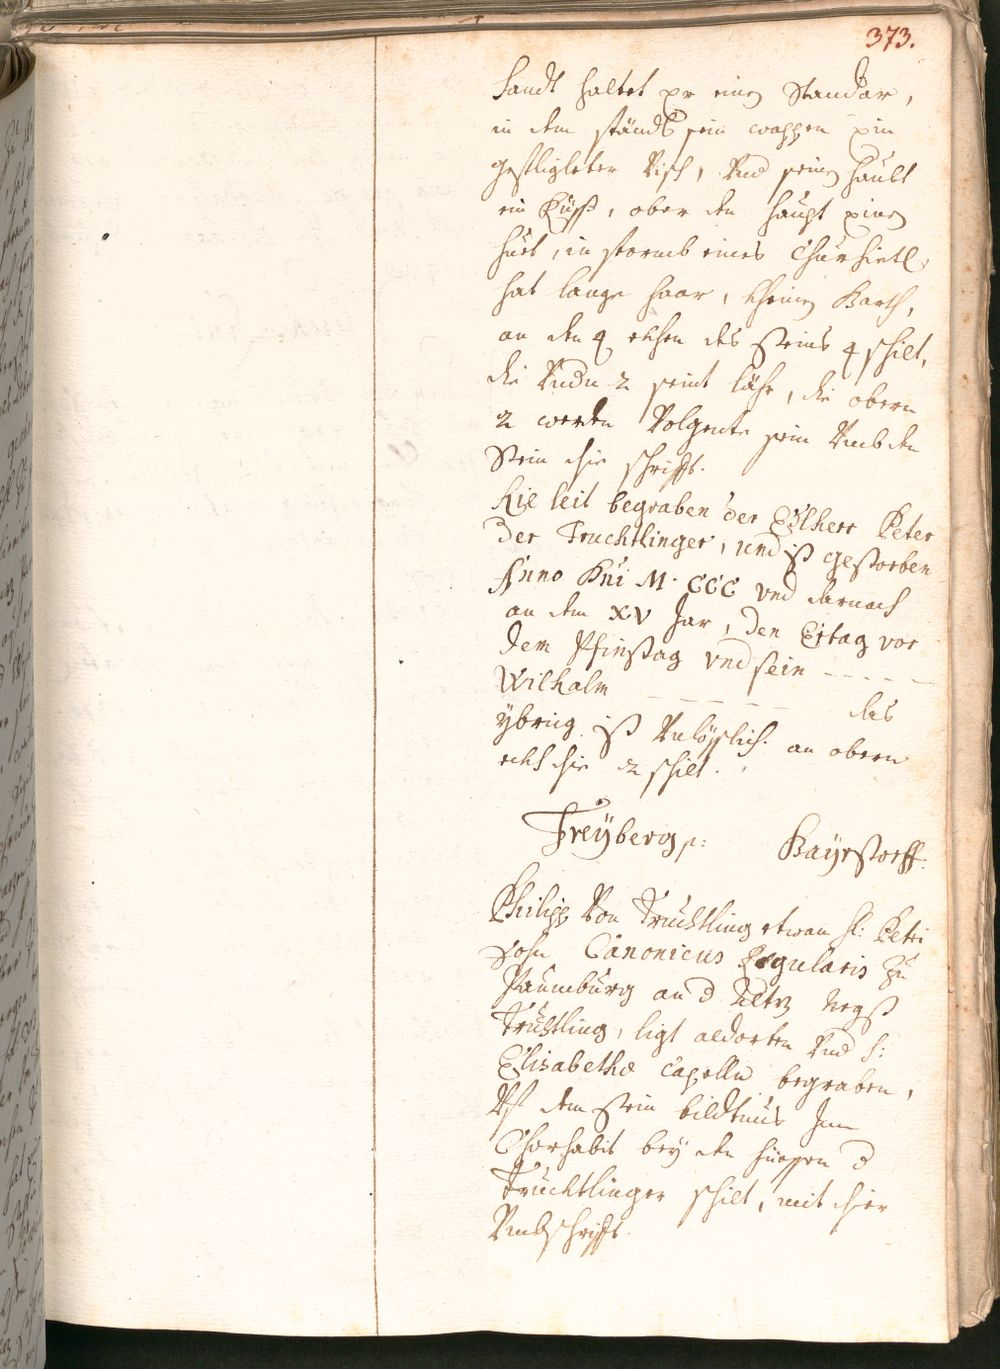 373.
handt haltet er einen Standar,
in dem ständs sein wappen ein
gefligleter Visch, Und seinem haubt
ein Küss, ober dem haupt einen
huet, in formb eines Churhietl
hat lange haar, kheinen Barth,
an den 4 ekhen des Steins 4 schilt,
die Undn 2 seint lähr, die obern
2 werden Volgente sein Umb den
Stein die schrifft.
Hie leit begraben der Edlherr Peter
Der Truchtlinger, und ist gestorben
Anno Dni M. CCC und darnach
an dem XV Jar, Den Eritag vor
dem Pfinstag und sein - - - - -
Wilhalm - - - - - das
ybrig ist Unlösslich. an obern
ekh die 2 schilt.
Freyberg: Bayrstorff.
Philipp Von Truchtling etwan H: Petri
Sohn Canonicus Regularis zu
Paumburg an d Altz negst
Truchtling, ligt aldorten Und S:
Elisabethæ Capelln begraben,
Uf dem Stein bildtnus Im
Chorhabit bey den füessen d
Truchtlinger schilt, mit diser
Umbschrifft.